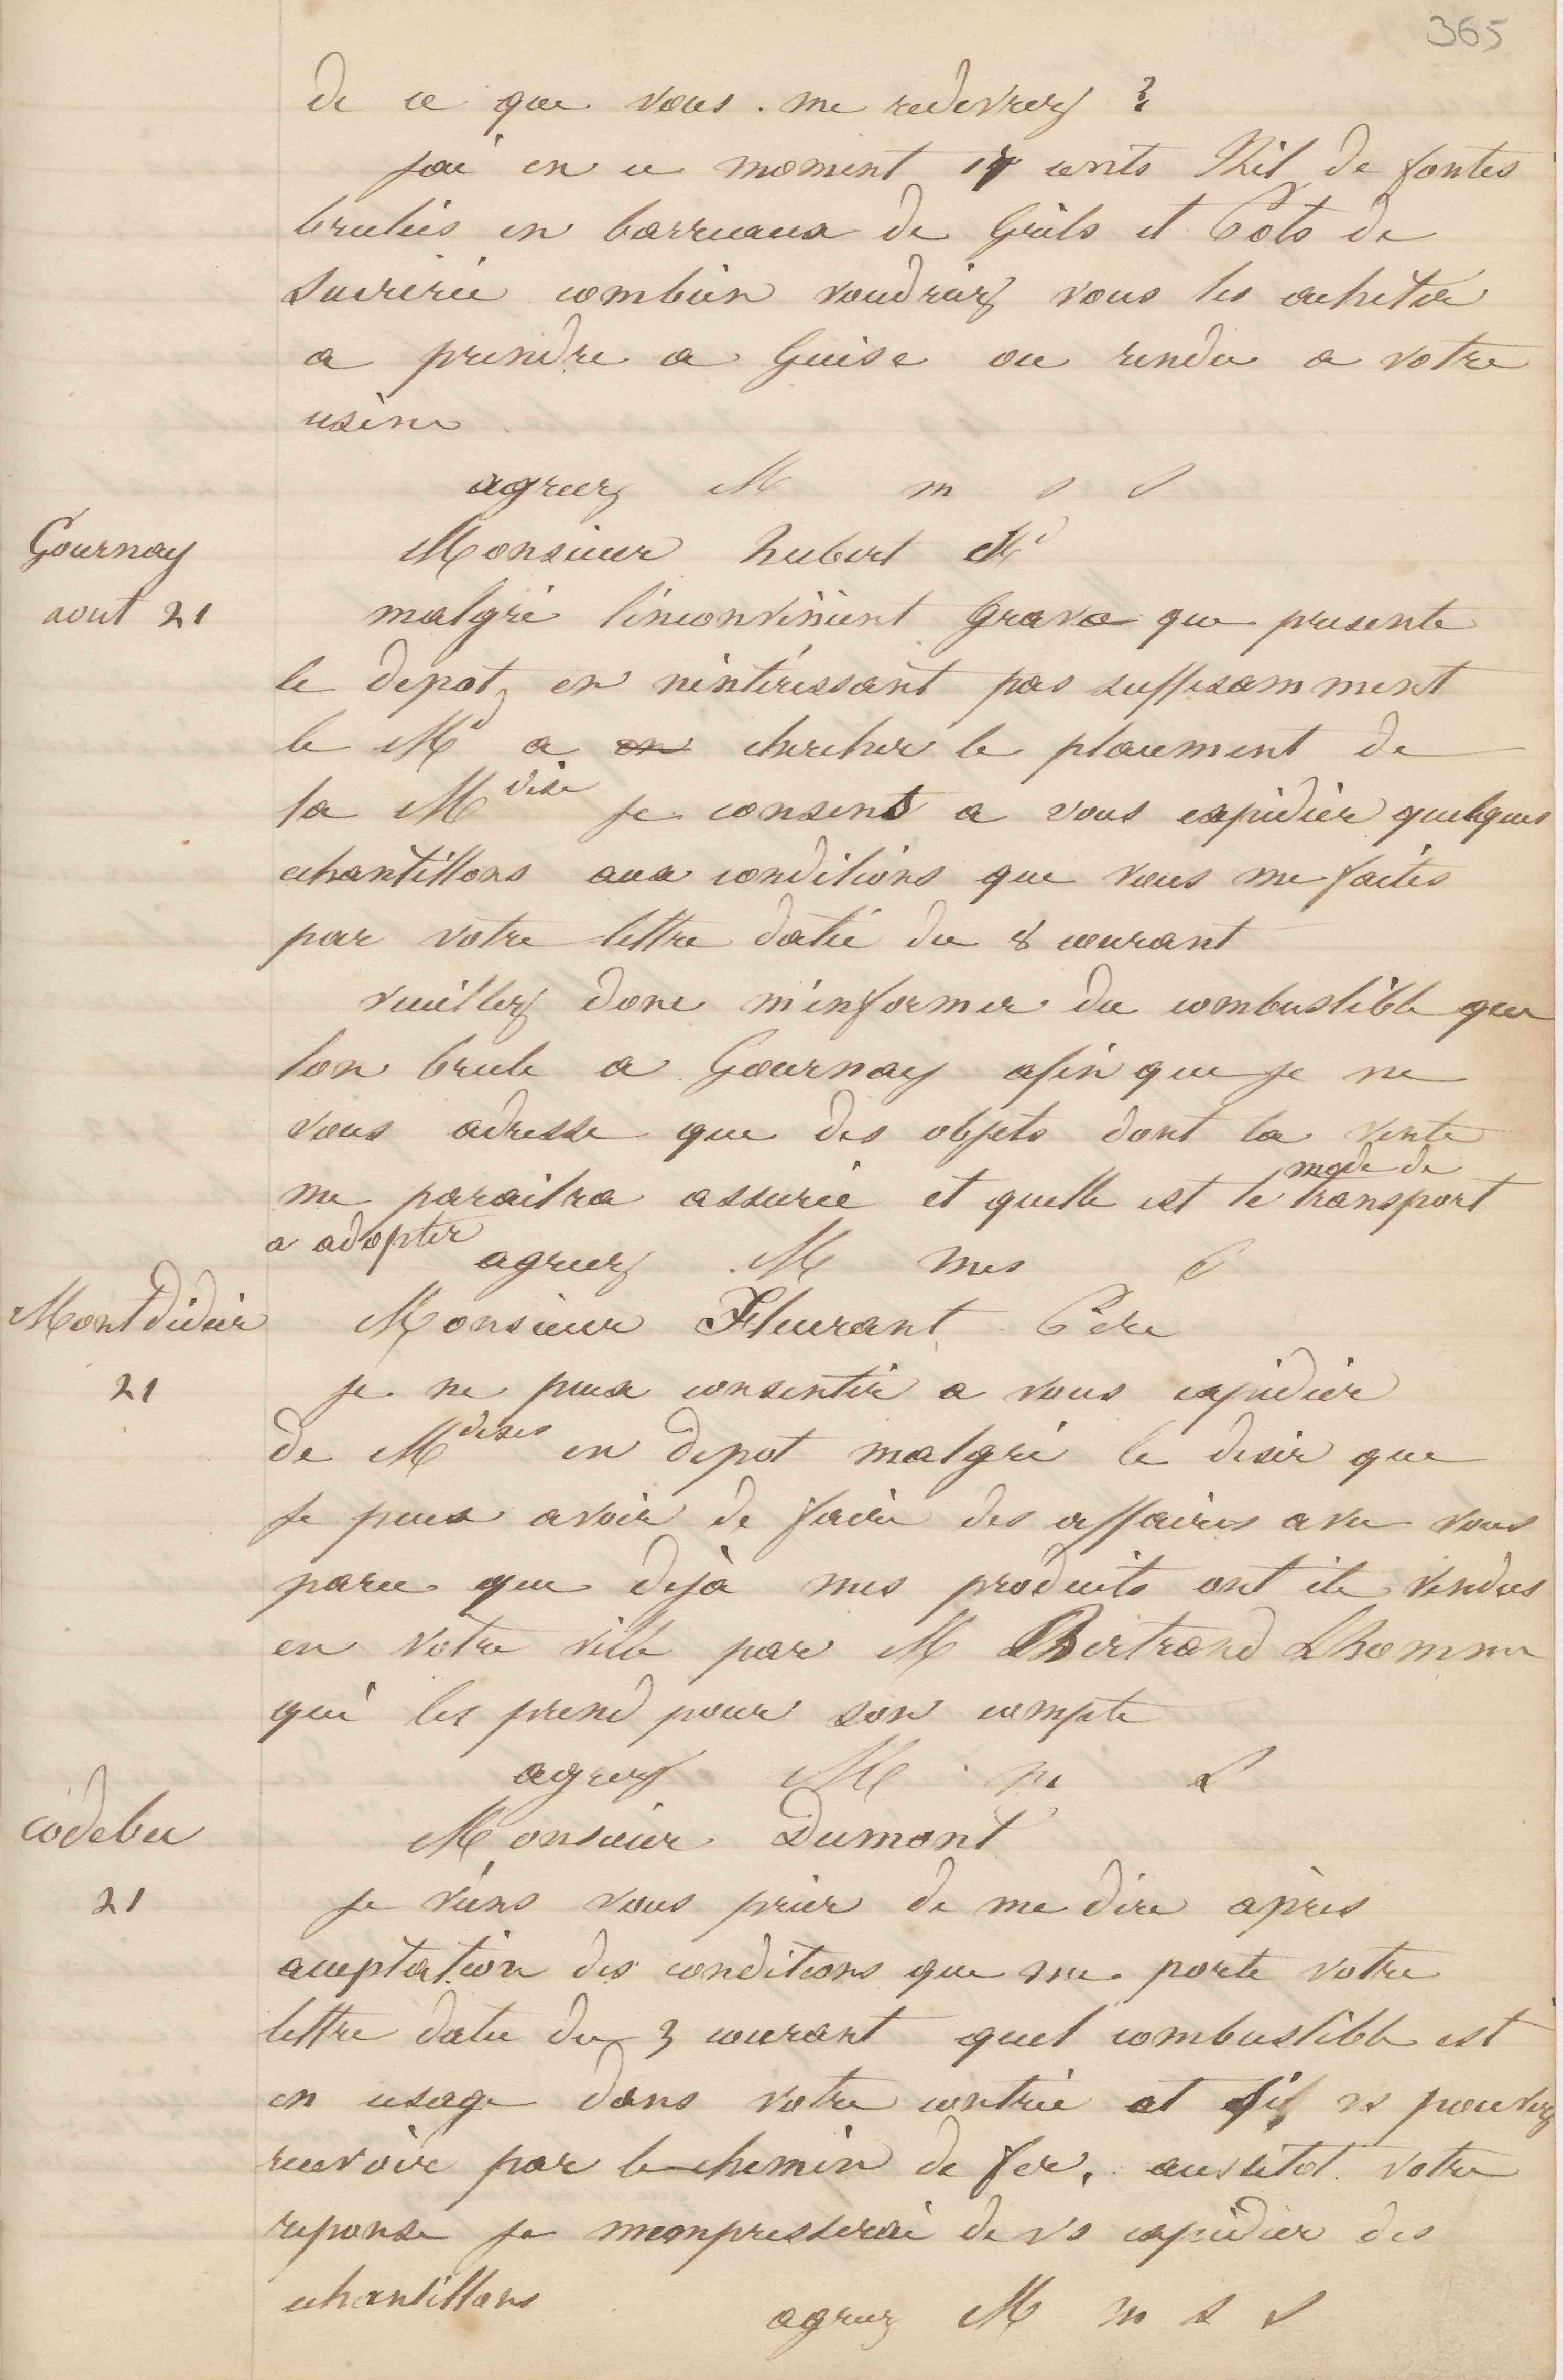 365
de ce que vous me redevrez ?
jai en ce moment 17 cents Kil de fontes
brulées en barreaux de Grils et Pots de
sucrerie combien voudriez vous les acheter
a prendre a Guise ou rendu a votre
usine
agreez M m s s
Gournay
aout 21
Monsieur hubert Md
malgré linconvénient Grave que presente
le depot, en nintéressant pas suffisamment
le Md a en chercher le placement de
la Mdise je consens a vous expédier quelques
echantillons aux conditions que vous me faites
par votre lettre datée du 8 courant
veuillez donc minformer du combustible que
lon brule a Gournay afin que je ne
vous adresse que des objets dont la vente
me paraitra assurée et quelle est le mode de transport
a adopter
agreez M mes s
Montdidier
21
Monsieur Fleurant Père
je ne peux consentir a vous expédier
de Mdises en depot malgré le desir que
je peux avoir de faire des affaires avec vous
parce que dejà mes produits ont ete vendus
en votre ville par M Bertrand Lhomme
qui les prend pour son compte
agreez M m s
codebec
21
Monsieur Dumont
je viens vous prier de me dire après
acceptation des conditions que me porte votre
lettre datee du 3 courant quel combustible est
en usage dans votre contrée et si vs pouvez
recevoir par le chemin de fer, aussitot votre
reponse je mempresserai de vs expédier des
echantillons
agreez M m s s